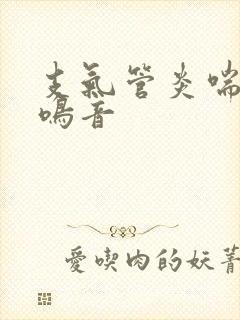 支氣管炎喘
鳴音
愛喫肉的妖菁